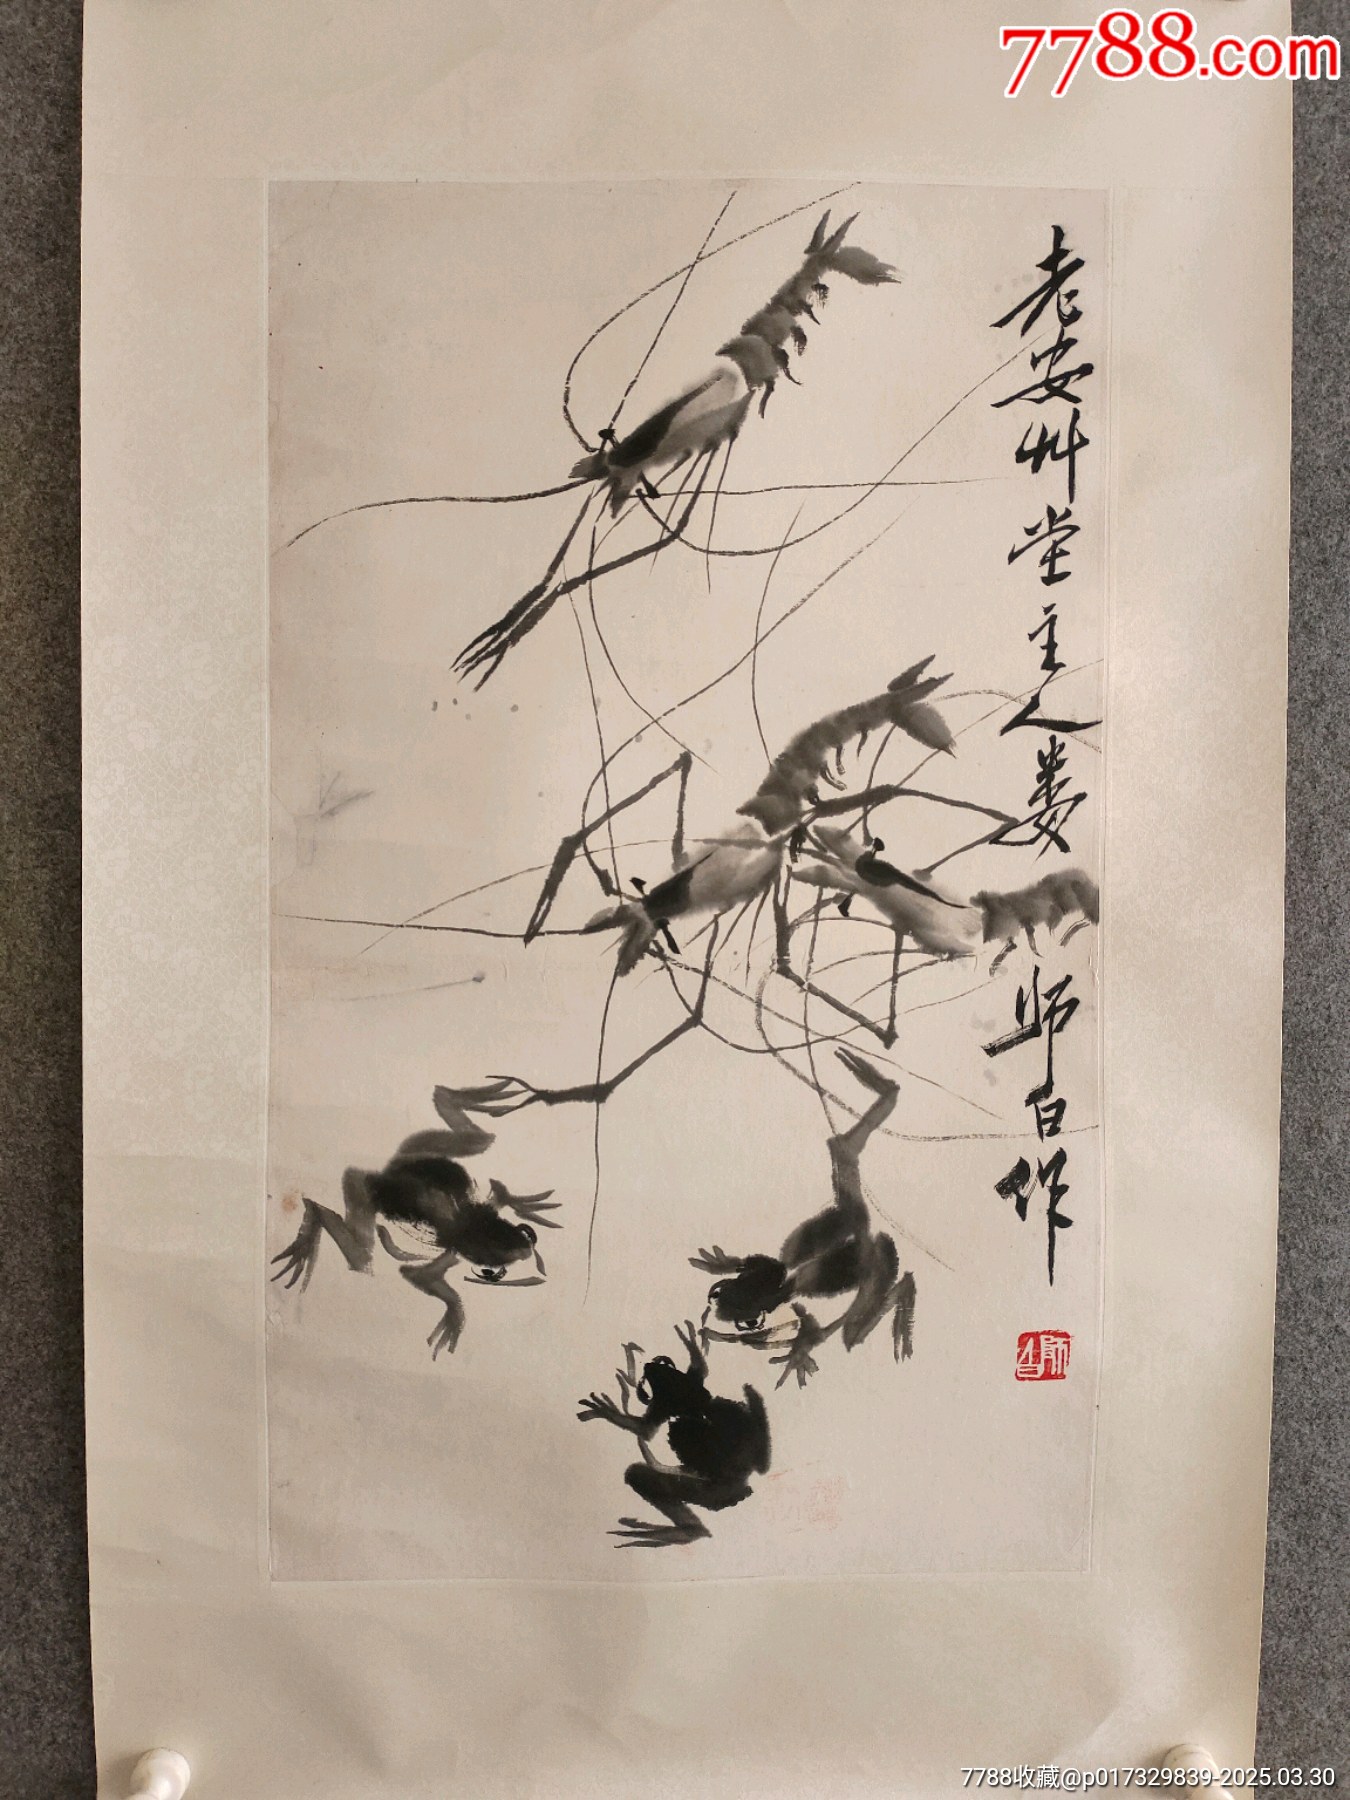 7788.com
老安艸堂主人娄师白作
师白
7788收藏@p017329839-2025.03.30